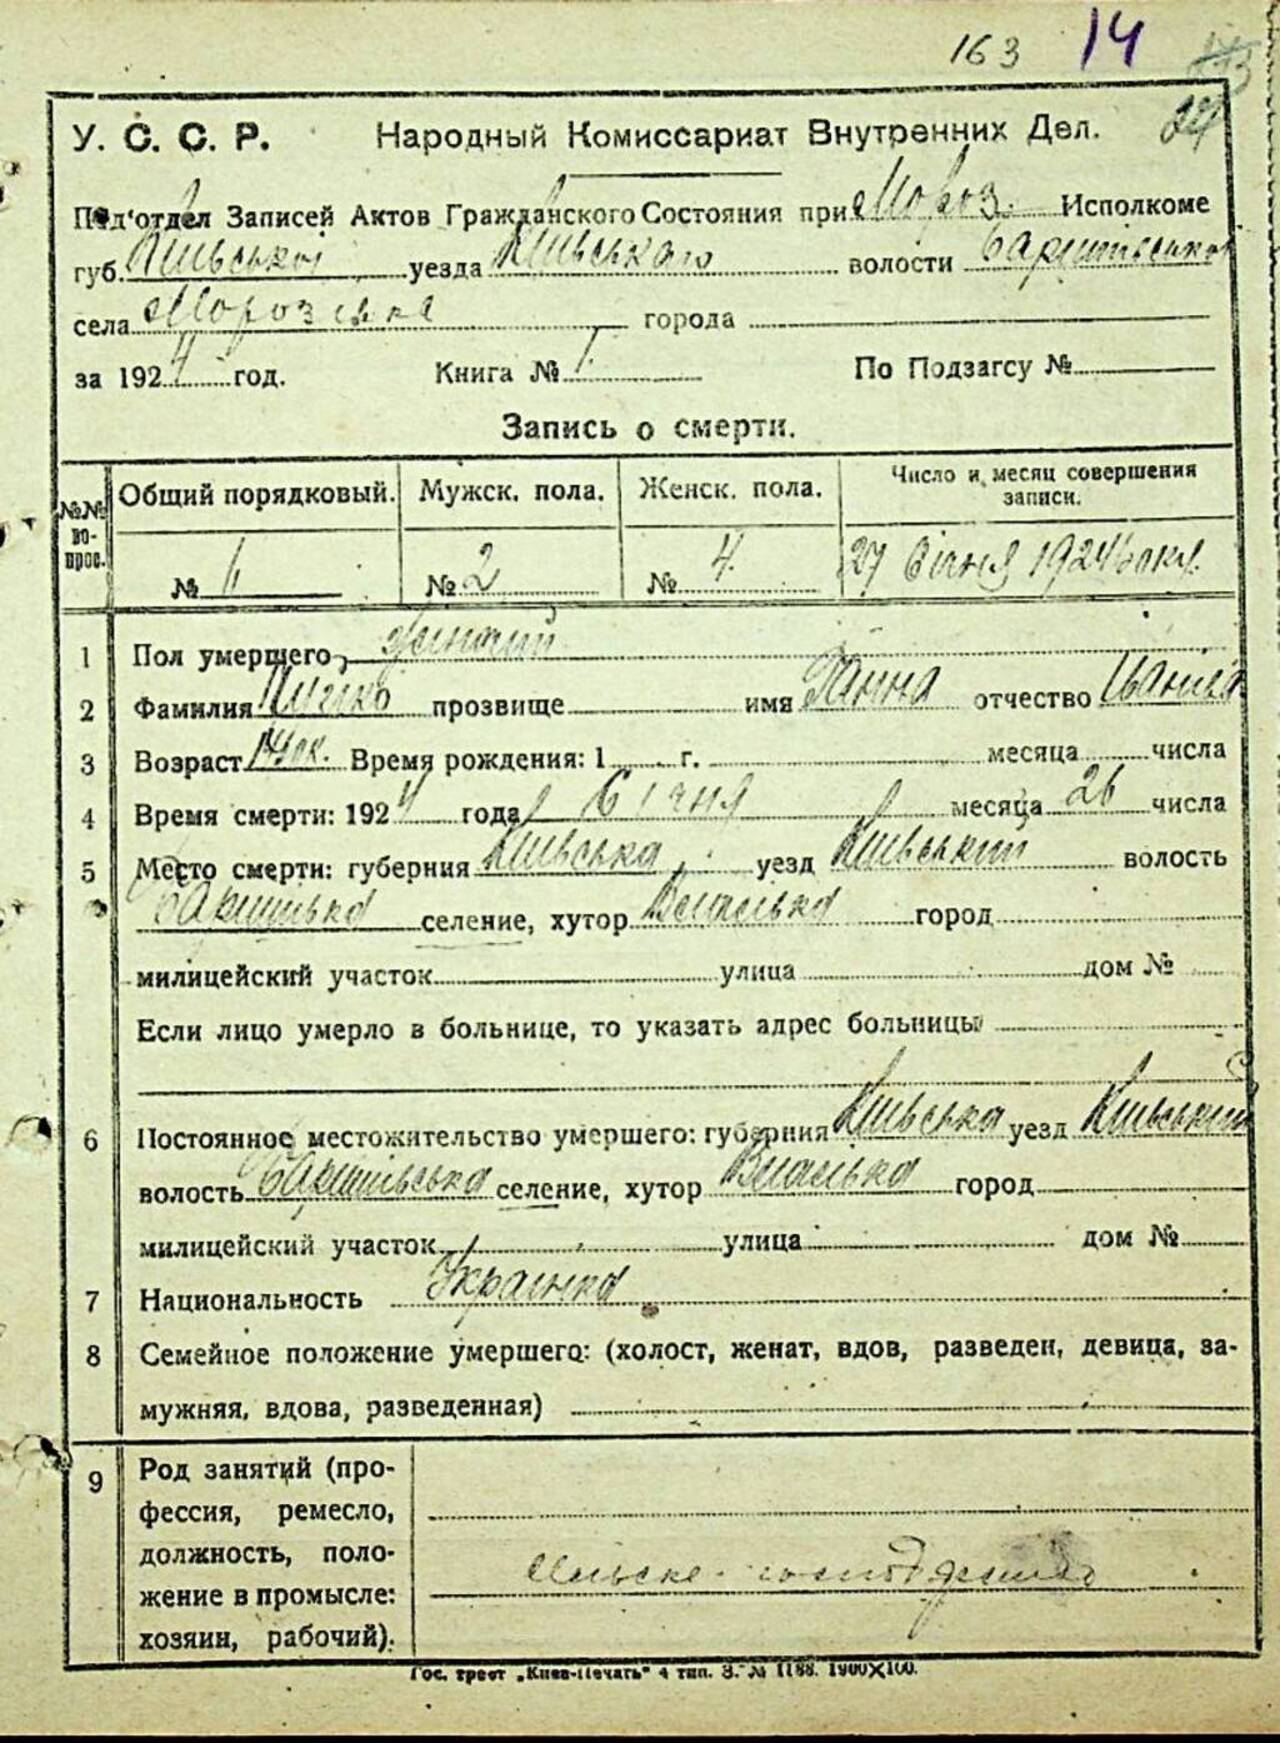 163 14
24
У. С. С. Р. Народный Комиссариат Внутренних Дел.
Под'отдел Записей Актов Гражданского Состояния при Мороз. Исполкоме
губ. Київської уезда Київського волости Баришівської
села Морозівка города
за 1924 год. Книга № 1 По Подзагсу №
Запись о смерти.
№№ вопрос. Общий порядковый. Мужск. пола. Женск. пола. Число и месяц совершения записи.
№ 6 № 2 № 4. 27 Січня 1924 року.
1 Пол умершего, женский
2 Фамилия прозвище имя Ганна отчество Іванівна
3 Возраст Время рождения: 1 г. месяца числа
4 Время смерти: 1924 года Січня месяца 26 числа
5 Место смерти: губерния Київська уезд Київський волость
Баришівська селение, хутор город
милицейский участок улица дом №
Если лицо умерло в больнице, то указать адрес больницы
6 Постоянное местожительство умершего: губерния Київська уезд Київський
волость Баришівська селение, хутор город
милицейский участок улица дом №
7 Национальность Українка
8 Семейное положение умершего: (холост, женат, вдов, разведен, девица, за-
мужняя, вдова, разведенная)
9 Род занятий (про-
фессия, ремесло,
должность, поло-
жение в промысле:
хозяин, рабочий).
Гос. трест „Киев-Печать" 4 тип. З. № 1188. 1900×100.